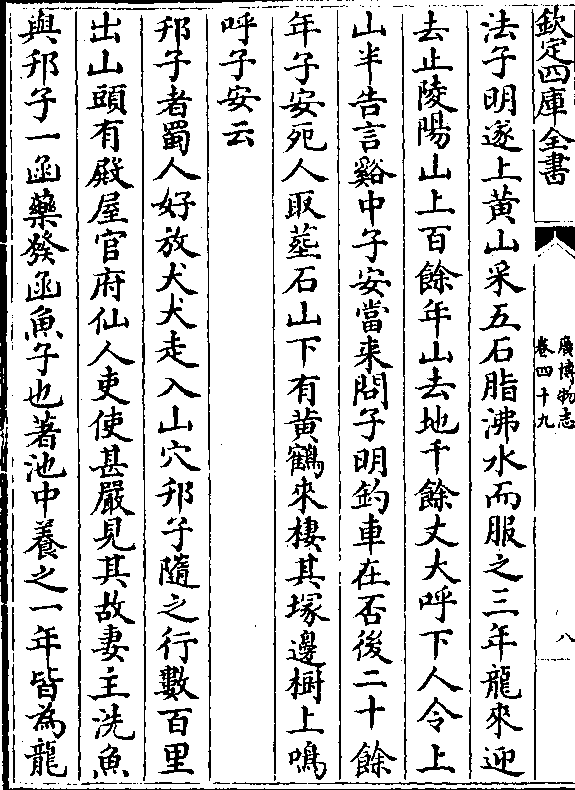 欽定四庫全書
廣博物志
卷四十九
八
法子明遂上黄山采五石脂沸水而服之三年龍來迎
去止陵陽山上百餘年山去地千餘丈大呼下人令上
山半告言谿中子安當来問子明釣車在否後二十餘
年子安死人取塟石山下有黄鶴來棲其塚邊樹上鳴
呼子安云
邗子者蜀人好放犬犬走入山穴邗子隨之行數百里
出山頭有殿屋官府仙人吏使甚嚴見其故妻主洗魚
與邗子一函藥發函魚子也著池中養之一年皆為龍